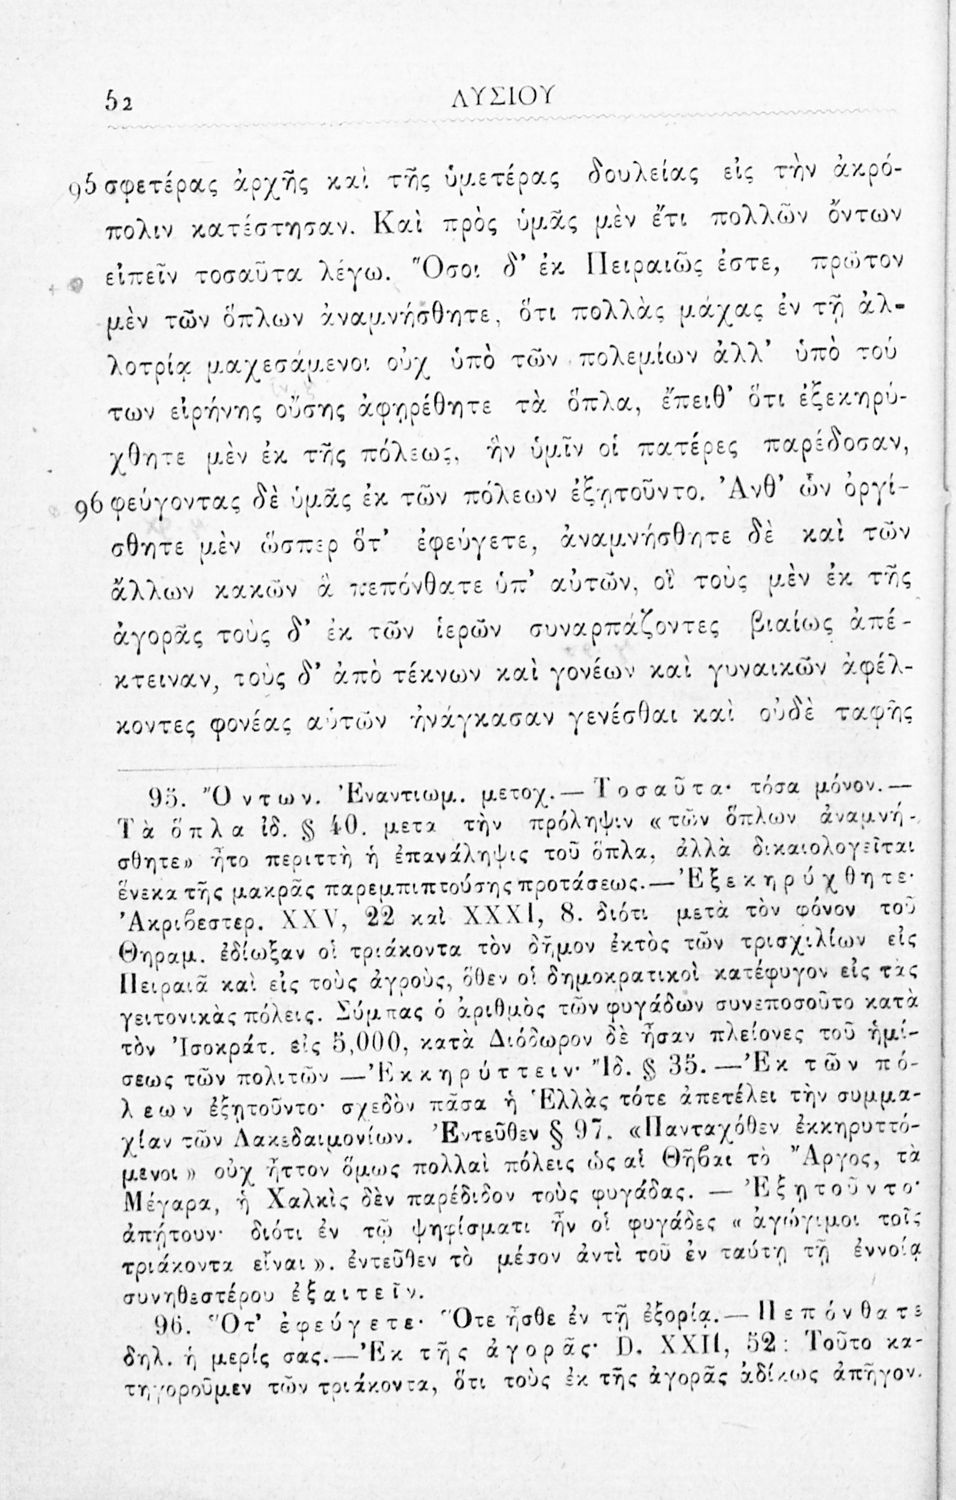 52
ΛΥΣΙΟΥ
95 σφετέρας ἀρχῆς καὶ τῆς ὑμετέρας δουλείας εἰς τὴν ἀκρό-
πολιν κατέστησαν. Καὶ πρὸς ὑμᾶς μὲν ἔτι πολλῶν ὄντων
εἰπεῖν τοσαῦτα λέγω. Ὅσοι δ’ ἐκ Πειραιῶς ἐστε, πρῶτον
μὲν τῶν ὅπλων ἀναμνήσθητε, ὅτι πολλὰς μάχας ἐν τῇ ἀλ-
λοτρίᾳ μαχεσάμενοι οὐχ ὑπὸ τῶν πολεμίων ἀλλ’ ὑπὸ τού
των εἰρήνης οὔσης ἀφῃρέθητε τὰ ὅπλα, ἔπειθ’ ὅτι ἐξεκηρύ-
χθητε μὲν ἐκ τῆς πόλεως, ἣν ὑμῖν οἱ πατέρες παρέδοσαν,
96 φεύγοντας δὲ ὑμᾶς ἐκ τῶν πόλεων ἐξῃτοῦντο. Ἀνθ’ ὧν ὀργί-
σθητε μὲν ὥσπερ ὅτ’ ἐφεύγετε, ἀναμνήσθητε δὲ καὶ τῶν
ἄλλων κακῶν ἃ πεπόνθατε ὑπ’ αὐτῶν, οἳ τοὺς μὲν ἐκ τῆς
ἀγορᾶς τοὺς δ’ ἐκ τῶν ἱερῶν συναρπάζοντες βιαίως ἀπέ-
κτειναν, τοὺς δ’ ἀπὸ τέκνων καὶ γονέων καὶ γυναικῶν ἀφέλ-
κοντες φονέας αὑτῶν ἠνάγκασαν γενέσθαι καὶ οὐδὲ ταφῆς
95. Ὄντων. Ἐναντιωμ. μετοχ.— Τοσαῦτα· τόσα μόνον.—
Τὰ ὅπλα ἰδ. § 40. μετὰ τὴν πρόληψιν «τῶν ὅπλων ἀναμνή-
σθητε» ἦτο περιττὴ ἡ ἐπανάληψις τοῦ ὅπλα, ἀλλὰ δικαιολογεῖται
ἕνεκα τῆς μακρᾶς παρεμπιπτούσης προτάσεως.—Ἐξεκηρύχθητε·
Ἀκριβεστερ. XXV, 22 καὶ XXXI, 8. διότι μετὰ τὸν φόνον τοῦ
Θηραμ. ἐδίωξαν οἱ τριάκοντα τὸν δῆμον ἐκτὸς τῶν τρισχιλίων εἰς
Πειραιᾶ καὶ εἰς τοὺς ἀγρούς, ὅθεν οἱ δημοκρατικοὶ κατέφυγον εἰς τὰς
γειτονικὰς πόλεις. Σύμπας ὁ ἀριθμὸς τῶν φυγάδων συνεποσοῦτο κατὰ
τὸν Ἰσοκράτ. εἰς 5,000, κατὰ Διόδωρον δὲ ἦσαν πλείονες τοῦ ἡμί-
σεως τῶν πολιτῶν —Ἐκκηρύττειν· Ἴδ. § 35.—Ἐκ τῶν πό-
λεων ἐξῃτοῦντο· σχεδὸν πᾶσα ἡ Ἑλλὰς τότε ἀπετέλει τὴν συμμα-
χίαν τῶν Λακεδαιμονίων. Ἐντεῦθεν § 97. «Πανταχόθεν ἐκκηρυττό-
μενοι» οὐχ ἧττον ὅμως πολλαὶ πόλεις ὡς αἱ Θῆβαι τὸ Ἄργος, τὰ
Μέγαρα, ἡ Χαλκὶς δὲν παρέδιδον τοὺς φυγάδας. — Ἐξῃτοῦντο·
ἀπῄτουν· διότι ἐν τῷ ψηφίσματι ἦν οἱ φυγάδες « ἀγώγιμοι τοῖς
τριάκοντα εἶναι ». ἐντεῦθεν τὸ μέσον ἀντὶ τοῦ ἐν ταύτῃ τῇ ἐννοίᾳ
συνηθεστέρου ἐξαιτεῖν.
96. Ὅτ’ ἐφεύγετε· Ὅτε ἦσθε ἐν τῇ ἐξορίᾳ.—Πεπόνθατε
δηλ. ἡ μερίς σας.—Ἐκ τῆς ἀγορᾶς· D. XXII, 52: Τοῦτο κα-
τηγοροῦμεν τῶν τριάκοντα, ὅτι τοὺς ἐκ τῆς ἀγορᾶς ἀδίκως ἀπῆγον.